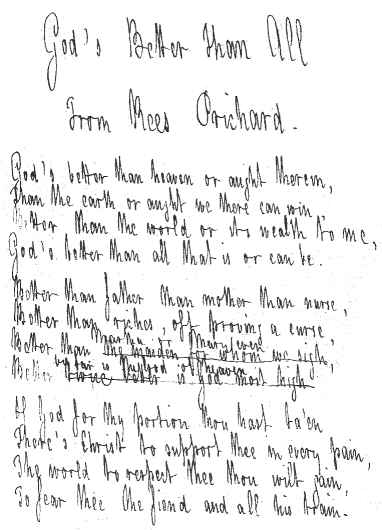 God's Better than All
From Rees Prichard.
God's better than heaven or aught therein,
Than the earth or aught we there can win,
Better than the world or its wealth to me,
God's better than all that is or can be.
Better than father than mother than nurse,
Better than riches, oft proving a curse,
Martha or Mary even
Better than the maiden for whom we sigh,
by far is the God of heaven
Better is God most high
If God for thy portion thou hast ta'en
There's Christ to support thee in every pain,
The world to respect thee thou wilt gain,
To fear thee the fiend and all his train.